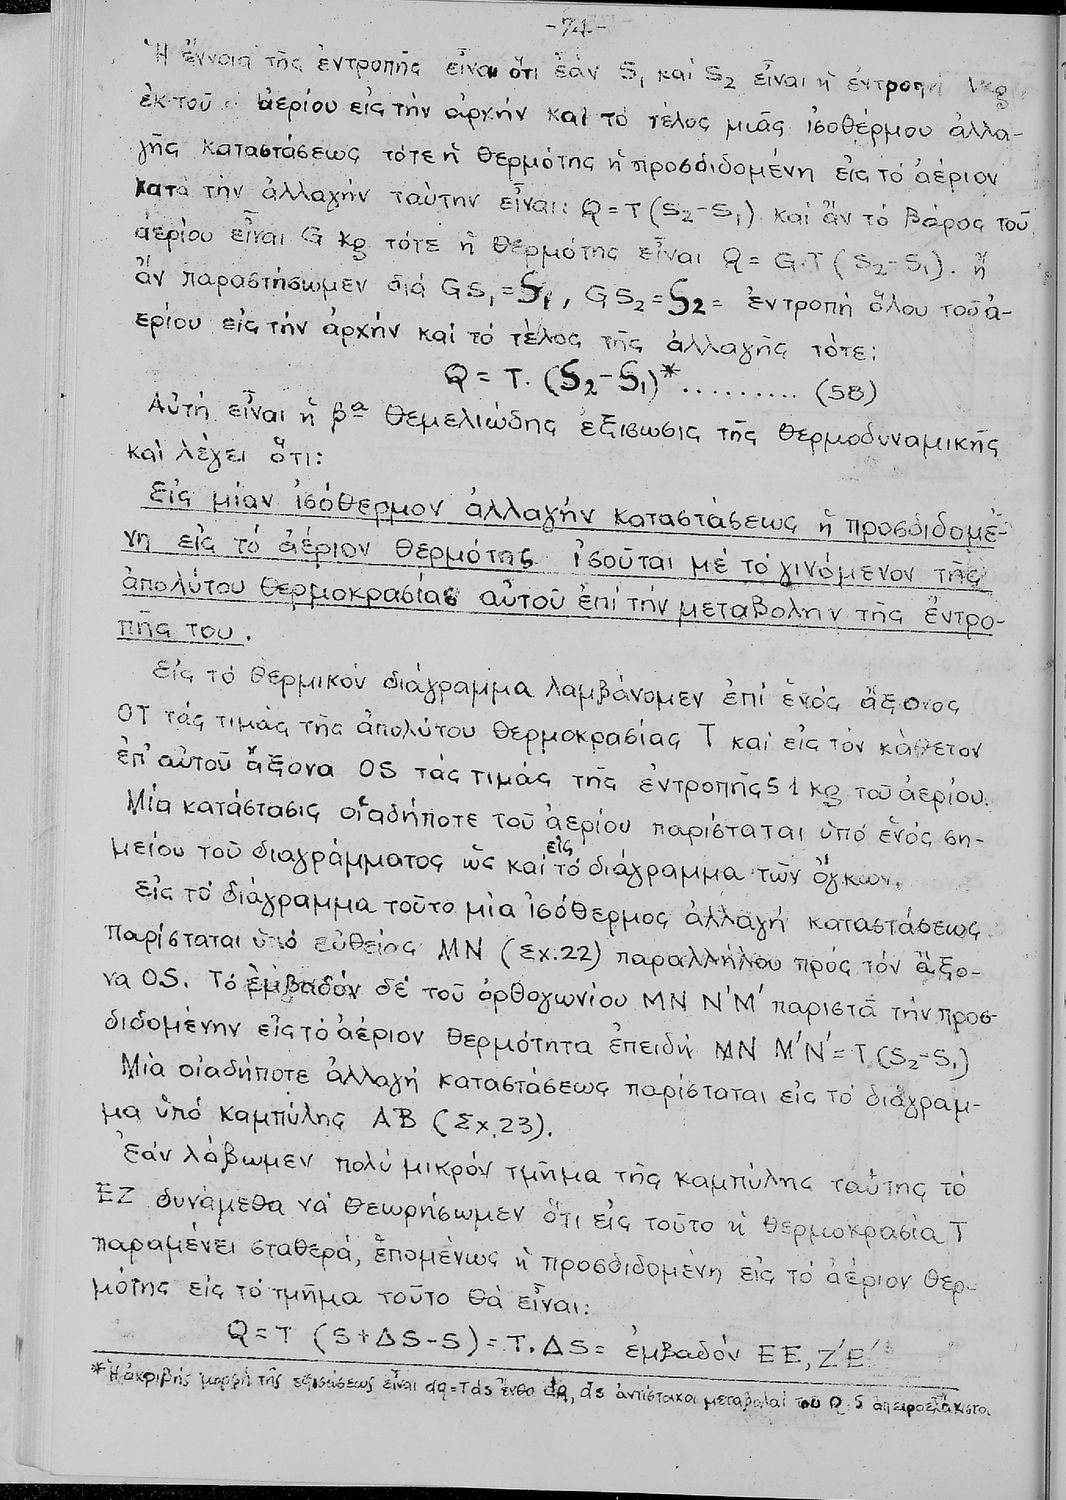 -74-
Ἡ ἔννοια τῆς ἐντροπῆς εἶναι ὅτι ἐάν S₁ καί S₂ εἶναι ἡ ἐντροπή 1kg
ἐκ τοῦ ἀερίου εἰς τήν ἀρχήν καί τό τέλος μιᾶς ἰσοθέρμου ἀλλα-
γῆς καταστάσεως τότε ἡ θερμότης ἡ προσδιδομένη εἰς τό ἀέριον
κατά τήν ἀλλαγήν ταύτην εἶναι: Q = T (S₂-S₁) καί ἄν τό βάρος τοῦ
ἀερίου εἶναι G kg τότε ἡ θερμότης εἶναι Q = G.T (S₂-S₁). ἤ
ἄν παραστήσωμεν διά GS₁ = S₁, GS₂ = S₂ = ἐντροπή ὅλου τοῦ ἀ-
ερίου εἰς τήν ἀρχήν καί τό τέλος τῆς ἀλλαγῆς τότε:
Q = T. (S₂-S₁)*.......... (58)
Αὐτή εἶναι ἡ βα θεμελιώδης ἐξίσωσις τῆς θερμοδυναμικῆς
καί λέγει ὅτι:
Εἰς μίαν ἰσόθερμον ἀλλαγήν καταστάσεως ἡ προσδιδομέ-
νη εἰς τό ἀέριον θερμότης ἰσοῦται μέ τό γινόμενον τῆς
ἀπολύτου θερμοκρασίας αὐτοῦ ἐπί τήν μεταβολήν τῆς ἐντρο-
πῆς του.
Εἰς τό θερμικόν διάγραμμα λαμβάνομεν ἐπί ἑνός ἄξονος
ΟΤ τάς τιμάς τῆς ἀπολύτου θερμοκρασίας Τ καί εἰς τόν κάθετον
ἐπ' αὐτοῦ ἄξονα OS τάς τιμάς τῆς ἐντροπῆς S 1 kg τοῦ ἀερίου.
Μία κατάστασις οἱαδήποτε τοῦ ἀερίου παρίσταται ὑπό ἑνός ση-
μείου τοῦ διαγράμματος ὡς καί εἰς τό διάγραμμα τῶν ὄγκων.
Εἰς τό διάγραμμα τοῦτο μία ἰσόθερμος ἀλλαγή καταστάσεως
παρίσταται ὑπό εὐθείας ΜΝ (Σχ.22) παραλλήλου πρός τόν ἄξο-
να OS. Τό ἐμβαδόν δέ τοῦ ὀρθογωνίου ΜΝ Ν'Μ' παριστᾶ τήν προσ-
διδομένην εἰς τό ἀέριον θερμότητα ἐπειδή ΜΝ Μ'Ν' = Τ.(S₂-S₁)
Μία οἱαδήποτε ἀλλαγή καταστάσεως παρίσταται εἰς τό διάγραμ-
μα ὑπό καμπύλης ΑΒ (Σχ.23).
Ἐάν λάβωμεν πολύ μικρόν τμῆμα τῆς καμπύλης ταύτης τό
ΕΖ δυνάμεθα νά θεωρήσωμεν ὅτι εἰς τοῦτο ἡ θερμοκρασία Τ
παραμένει σταθερά, ἑπομένως ἡ προσδιδομένη εἰς τό ἀέριον θερ-
μότης εἰς τό τμῆμα τοῦτο θά εἶναι:
Q = T (S+ΔS-S) = T.ΔS = ἐμβαδόν ΕΕ, Ζ'Ε'
*Ἡ ἀκριβής μορφή τῆς ἐξισώσεως εἶναι dq = Tds ἔνθα dq, ds ἀντίστοιχοι μεταβολαί τοῦ Q, S ἀπειροελάχιστοι